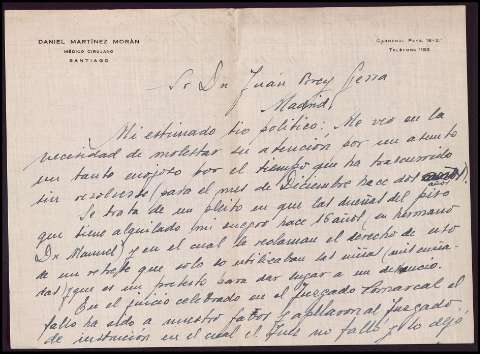 DANIEL MARTÍNEZ MORÁN
MÉDICO CIRUJANO
SANTIAGO
CARDENAL PAYÁ, 18-2.º
TELÉFONO 1183
Sr Dn Juan Rey
Madrid
Mi estimado tio politico: Me veo en la
necesidad de molestar su atención por un asunto
un tanto enojoso por el tiempo que ha trascurrido
sin resolverse (para el mes de Diciembre hace dos años).
Se trata de un pleito en que las dueñas del piso
que tiene alquilado mi suegro hace 16 años, su hermano
Dn Manuel) y en el cual le reclaman el derecho de uso
de un retrete que solo lo utilizaban sus
y que es un pretexto para dar lugar a un
En el juicio celebrado en el Juzgado Comarcal el
fallo ha sido a nuestro favor y apelaron al Juzgado
de instrucción en el cual el Juez no falló, y lo dejó